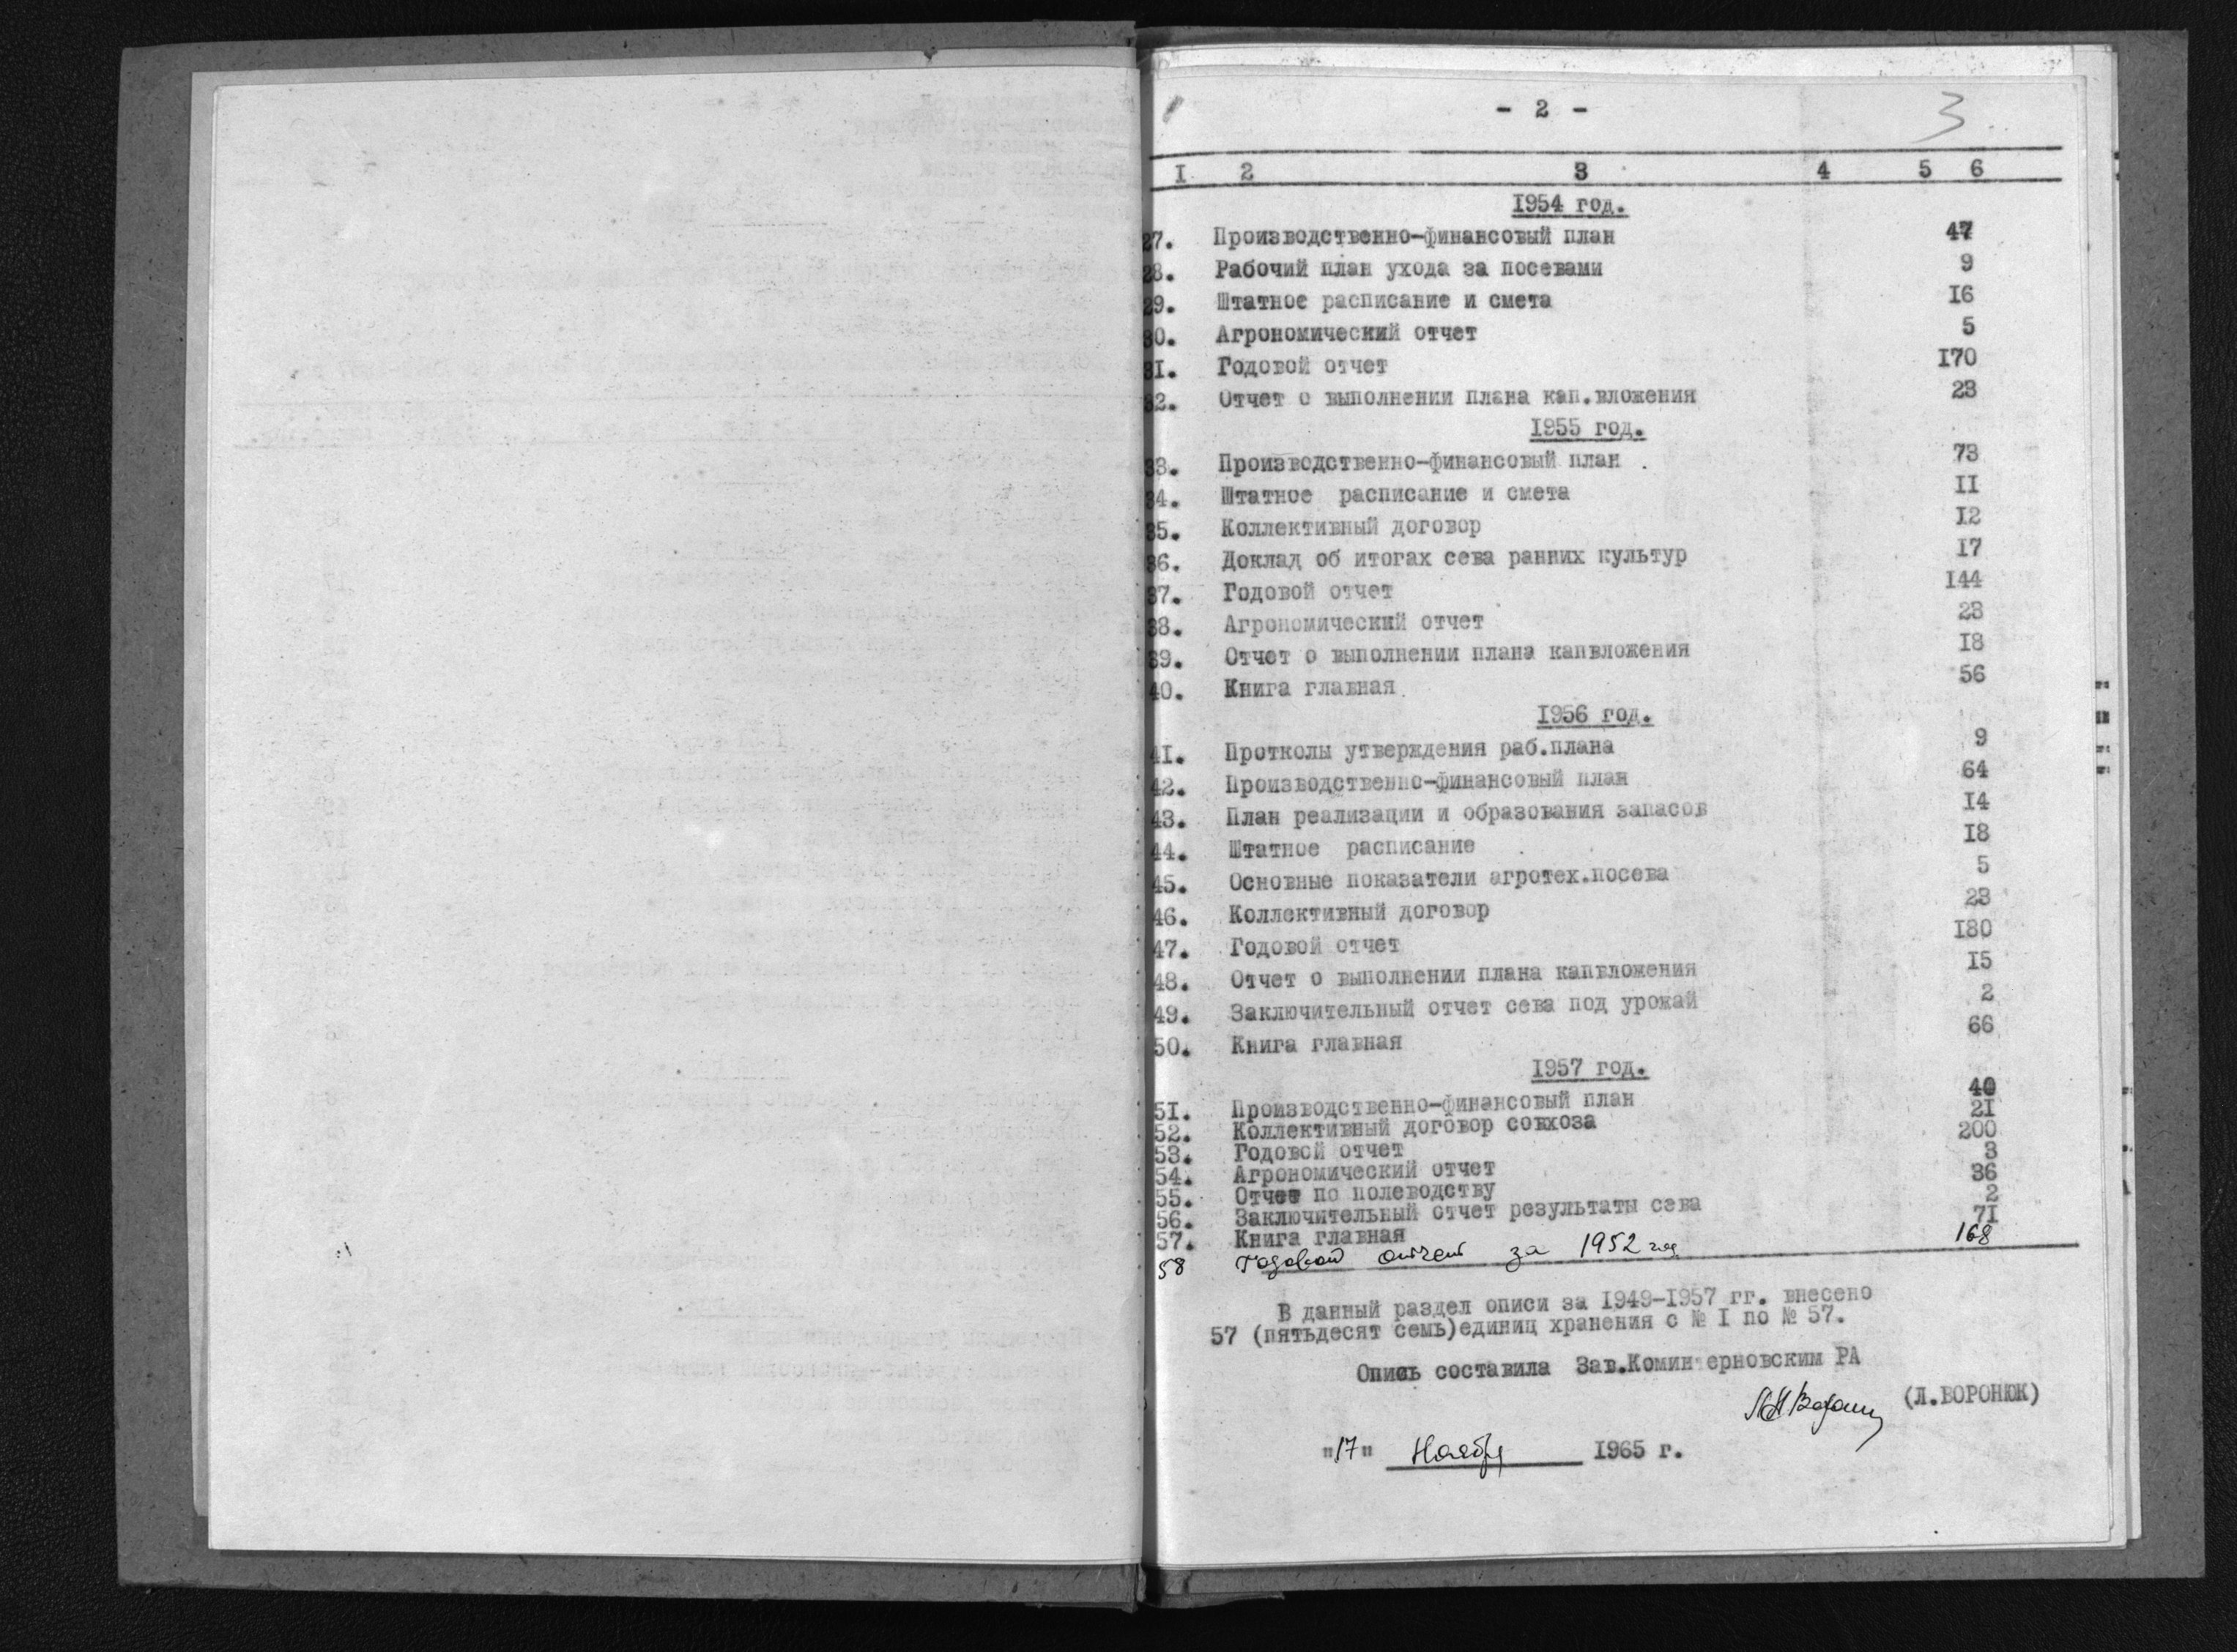 - 2 -
3
I 2 3 4 5 6
1954 год.
27. Производственно-финансовый план 47
28. Рабочий план ухода за посевами 9
29. Штатное расписание и смета I6
30. Агрономический отчет 5
31. Годовой отчет I70
32. Отчет о выполнении плана кап.вложения 23
1955 год.
33. Производственно-финансовый план 73
34. Штатное расписание и смета II
35. Коллективный договор I2
36. Доклад об итогах сева ранних культур I7
37. Годовой отчет I44
38. Агрономический отчет 23
39. Отчет о выполнении плана капвложения I8
40. Книга главная 56
1956 год.
4I. Протколы утверждения раб.плана 9
42. Производственно-финансовый план 64
43. План реализации и образования запасов I4
44. Штатное расписание I8
45. Основные показатели агротех.посева 5
46. Коллективный договор 23
47. Годовой отчет I80
48. Отчет о выполнении плана капвложения I5
49. Заключительный отчет сева под урожай 2
50. Книга главная 66
1957 год.
5I. Производственно-финансовый план 40
52. Коллективный договор совхоза 2I
53. Годовой отчет 200
54. Агрономический отчет 3
55. Отчет по полеводству 36
56. Заключительный отчет результаты сева 2
57. Книга главная 7I
58 Годовой отчет за 1952 год 168
В данный раздел описи за I949-I957 гг. внесено
57 (пятьдесят семь)единиц хранения с № I по № 57.
Опись составила Зав.Коминтерновским РА
(Л.ВОРОНЮК)
"17" Ноября 1965 г.